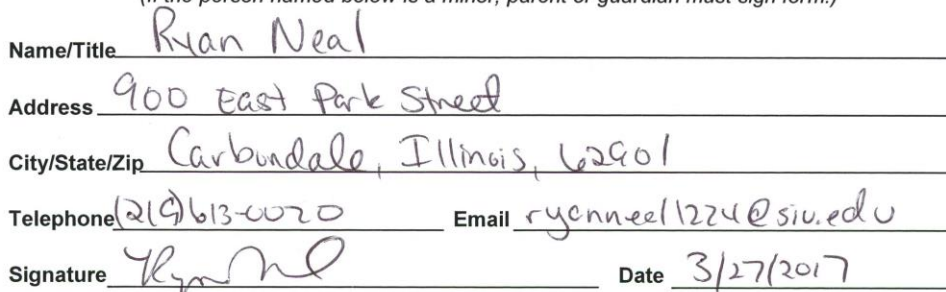 (If the person named below is a minor, parent or guardian must sign form.)
Name/Title Ryan Neal
Address 900 East Park Street
City/State/Zip Carbondale, Illinois, 62901
Telephone (219)613-0020 Email ryanneal1224@siu.edu
Signature Date 3/27/2017